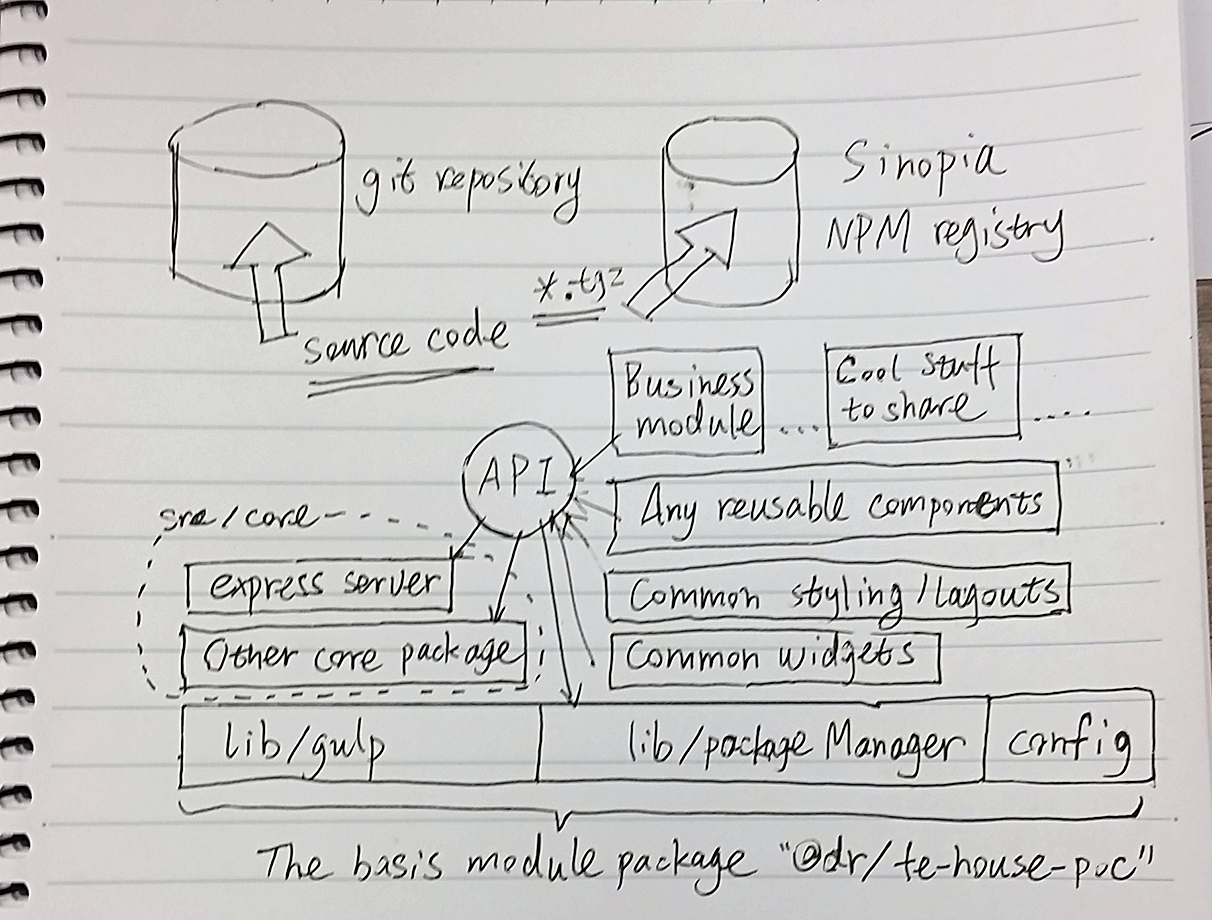 git repository
Sinopia
NPM registry
*.tgz
source code
Business
module
...
Cool stuff
to share
....
API
Any reusable components
src/core
express server
Common styling/layouts
Other core package
Common widgets
lib/gulp
lib/package Manager
config
The basis module package "@dr/fe-house-poc"